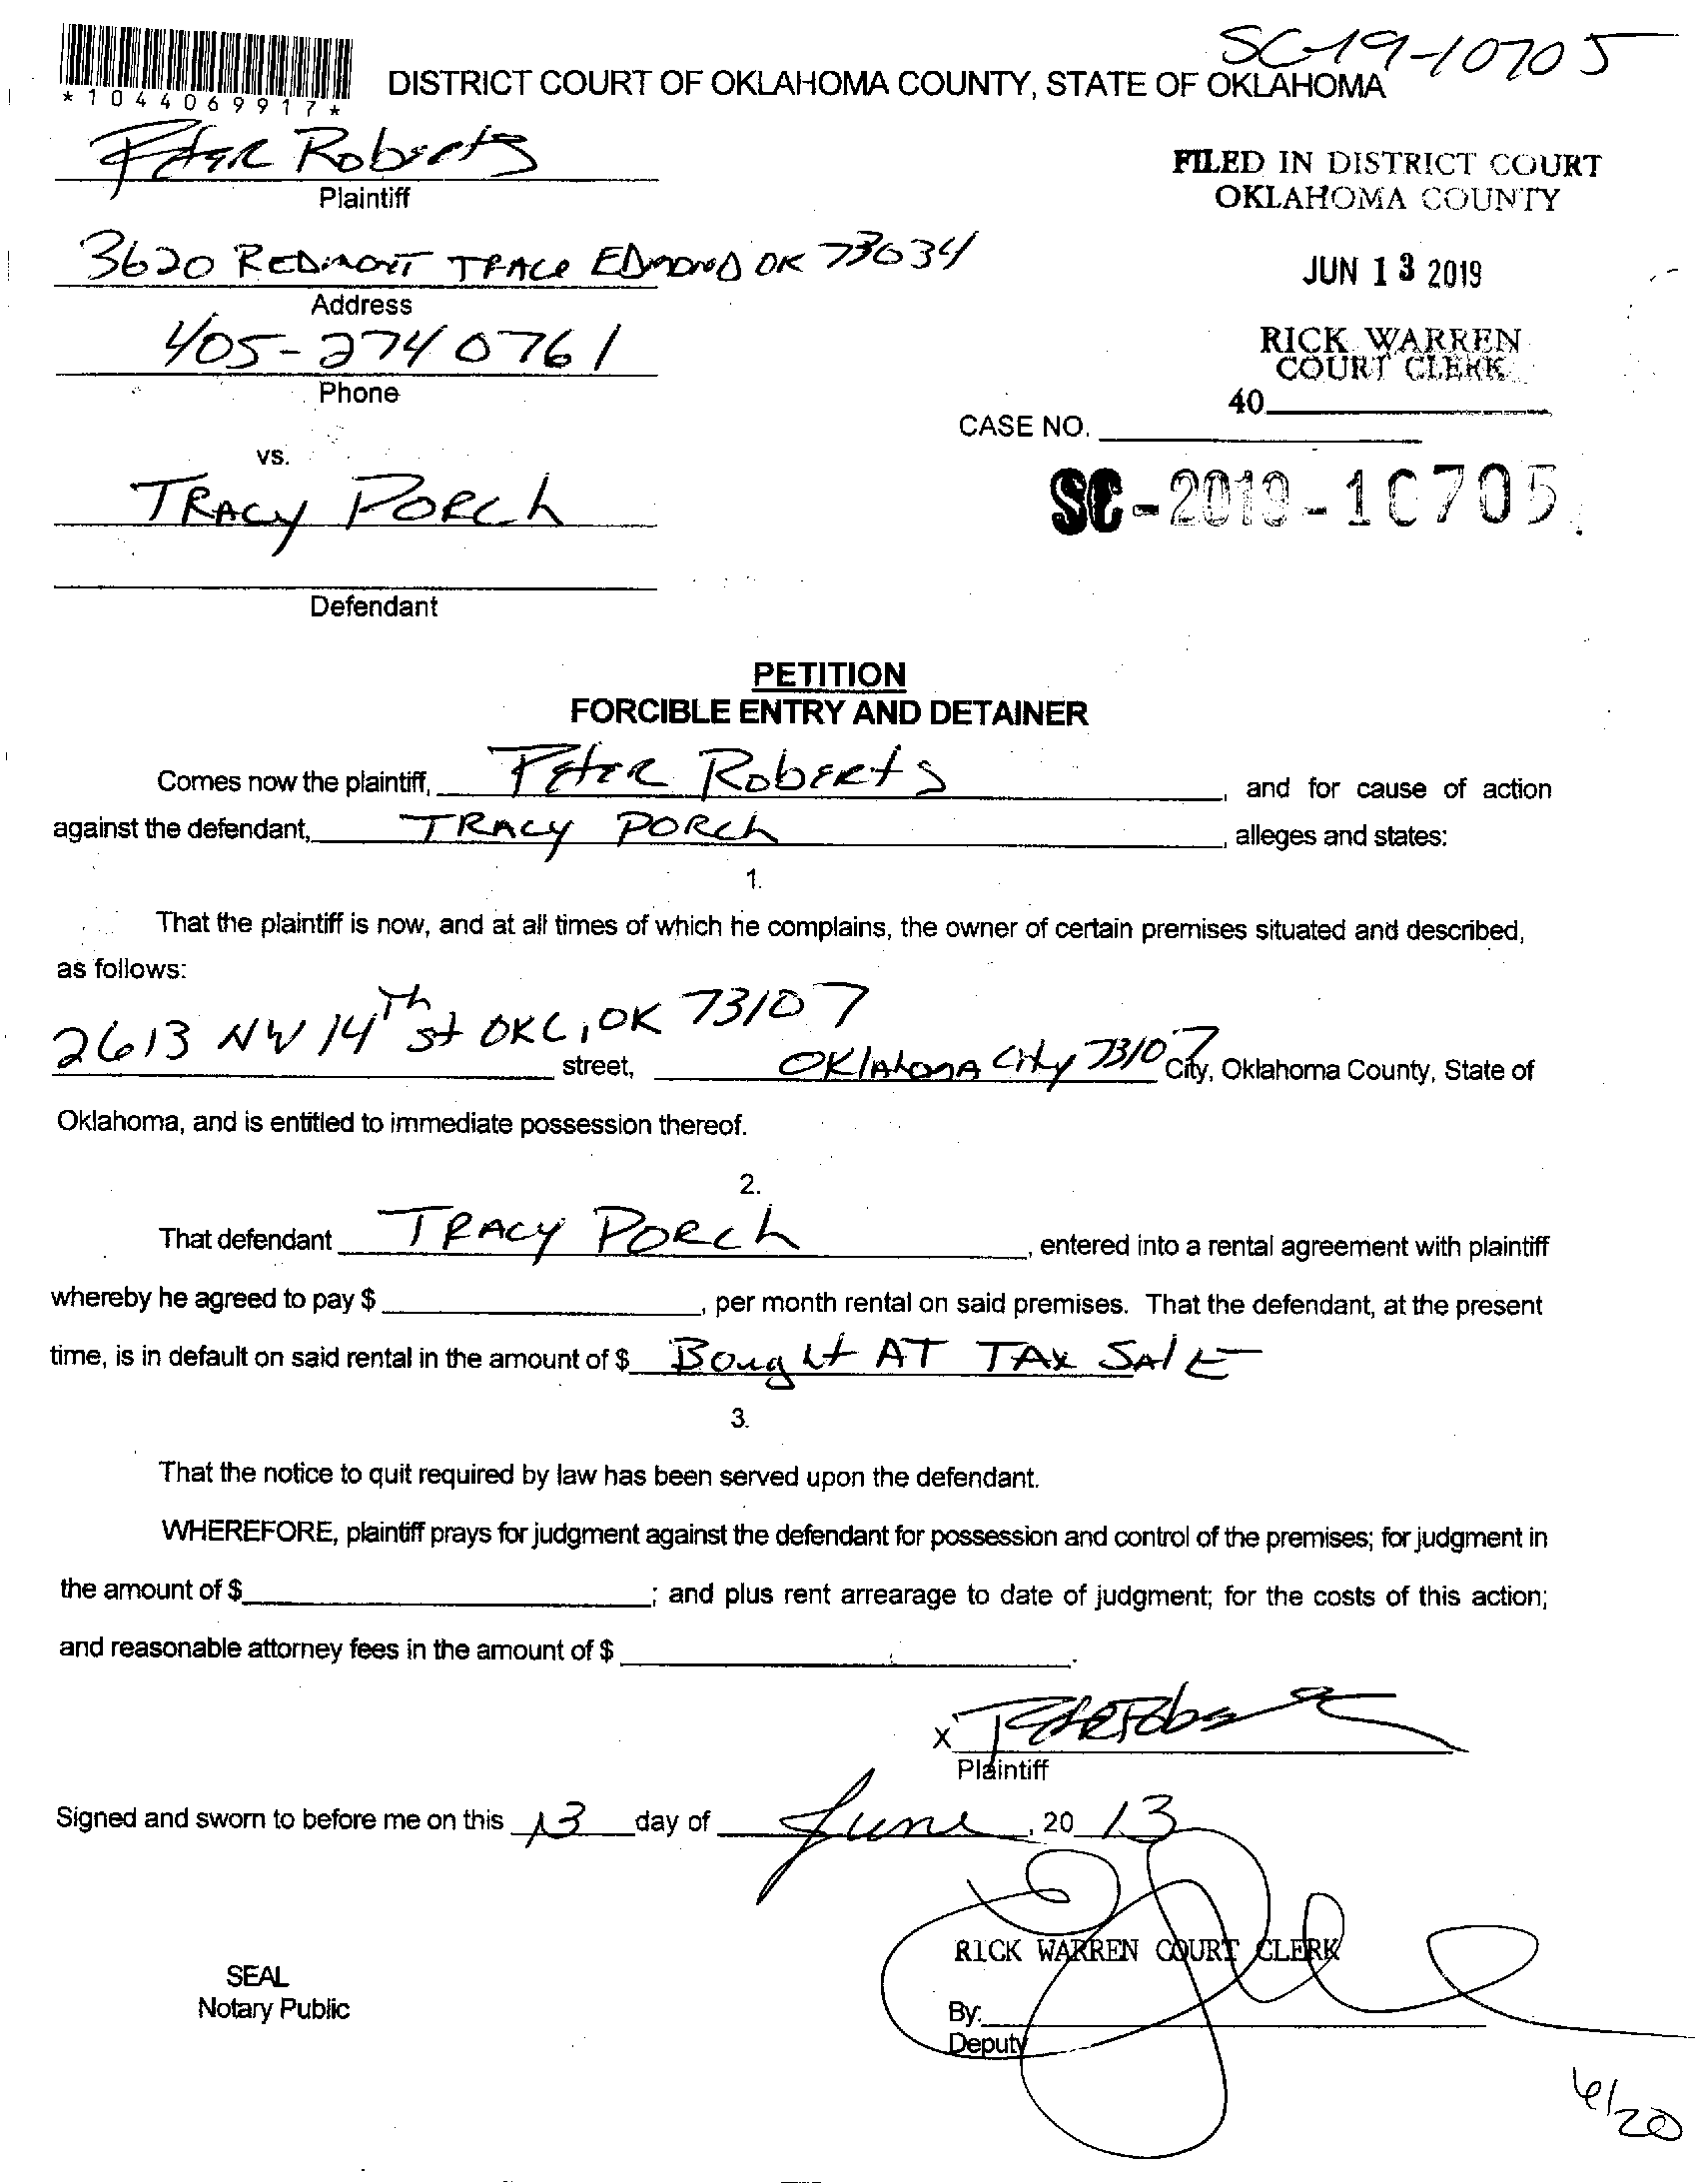 SC-19-10705
*1044069917*
DISTRICT COURT OF OKLAHOMA COUNTY, STATE OF OKLAHOMA
Peter Roberts
Plaintiff
FILED IN DISTRICT COURT
OKLAHOMA COUNTY
3620 REDMONT TRACE EDMOND OK 73034
Address
JUN 13 2019
405-274 0761
Phone
RICK WARREN
COURT CLERK
40
CASE NO.
vs.
TRACY PORCh
SC-2019-10705
Defendant
PETITION
FORCIBLE ENTRY AND DETAINER
Comes now the plaintiff, PETER RobERts, and for cause of action
against the defendant, TRACY PORCh, alleges and states:
1.
That the plaintiff is now, and at all times of which he complains, the owner of certain premises situated and described,
as follows:
2613 NW 14th st OKC, OK 73107 street, OKlAhomA City 73107 City, Oklahoma County, State of
Oklahoma, and is entitled to immediate possession thereof.
2.
That defendant TRACY PORCh, entered into a rental agreement with plaintiff
whereby he agreed to pay $, per month rental on said premises. That the defendant, at the present
time, is in default on said rental in the amount of $ Bought AT TAX SAlE
3.
That the notice to quit required by law has been served upon the defendant.
WHEREFORE, plaintiff prays for judgment against the defendant for possession and control of the premises; for judgment in
the amount of $; and plus rent arrearage to date of judgment; for the costs of this action;
and reasonable attorney fees in the amount of $.
X
Plaintiff
Signed and sworn to before me on this 13 day of June, 20 13
RICK WARREN COURT CLERK
SEAL
Notary Public
By:
Deputy
6/20